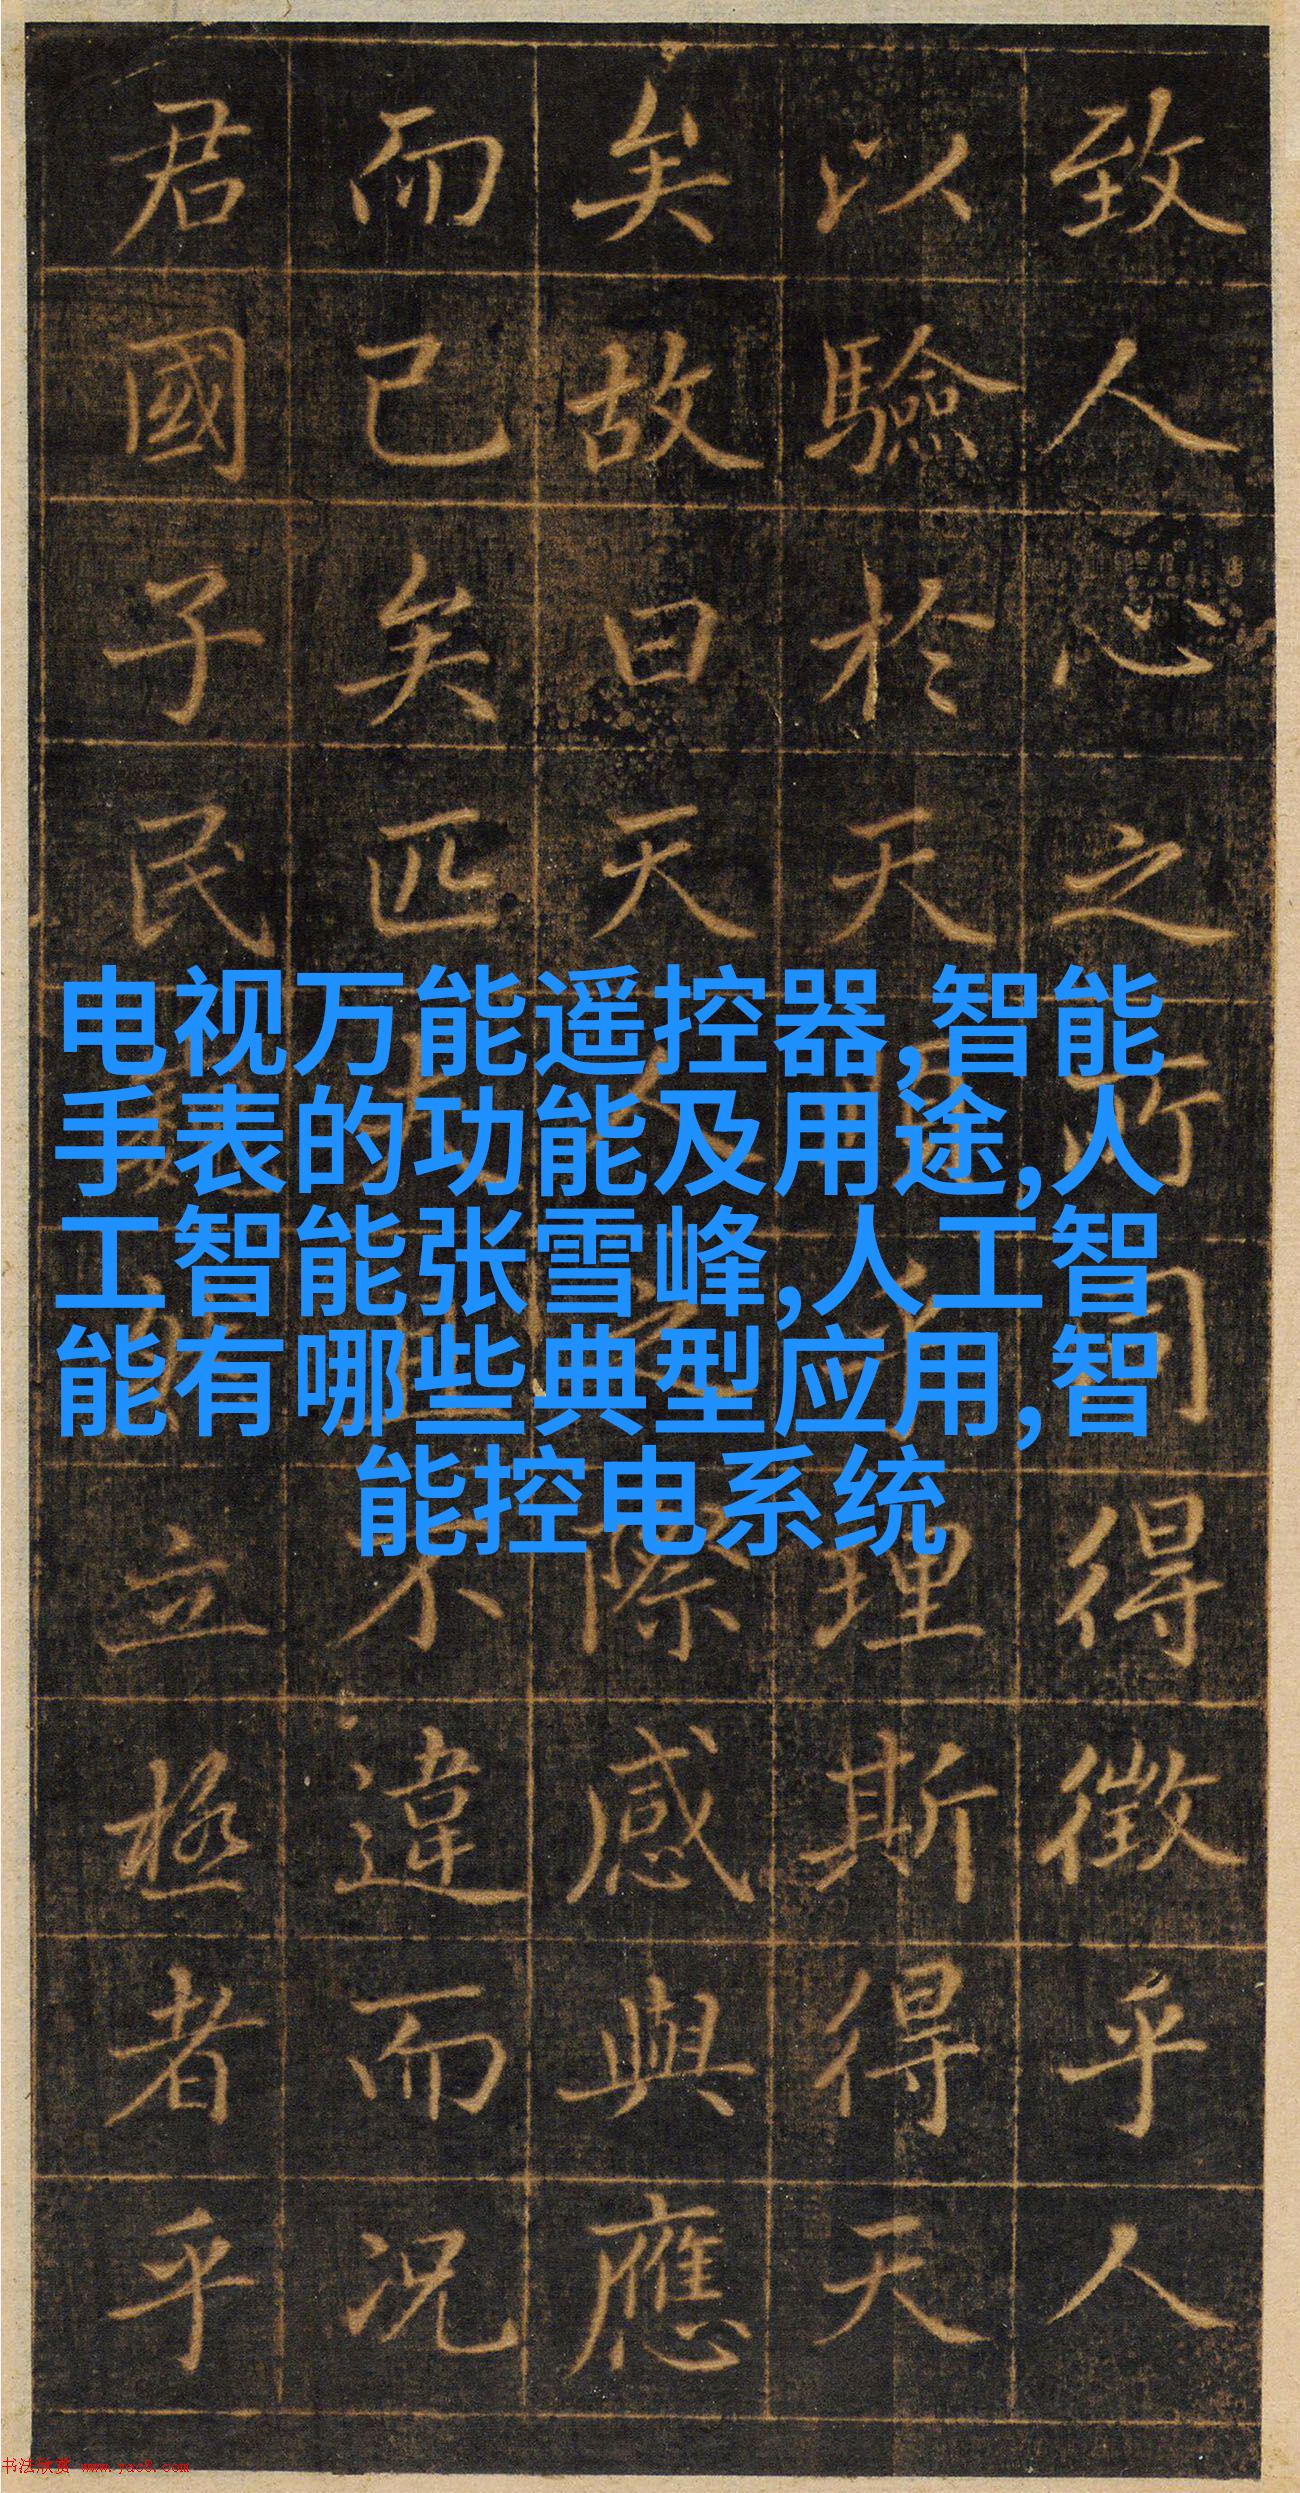 致人心之所同得徵乎人
以驗於天理斯得天
矣故曰天人之際感與應
而已矣匹夫且不違而況
君國子民立極者乎
电视万能遥控器,智能
手表的功能及用途,人
工智能张雪峰,人工智
能有哪些典型应用,智
能控电系统
书法欣赏 www.yac8.com